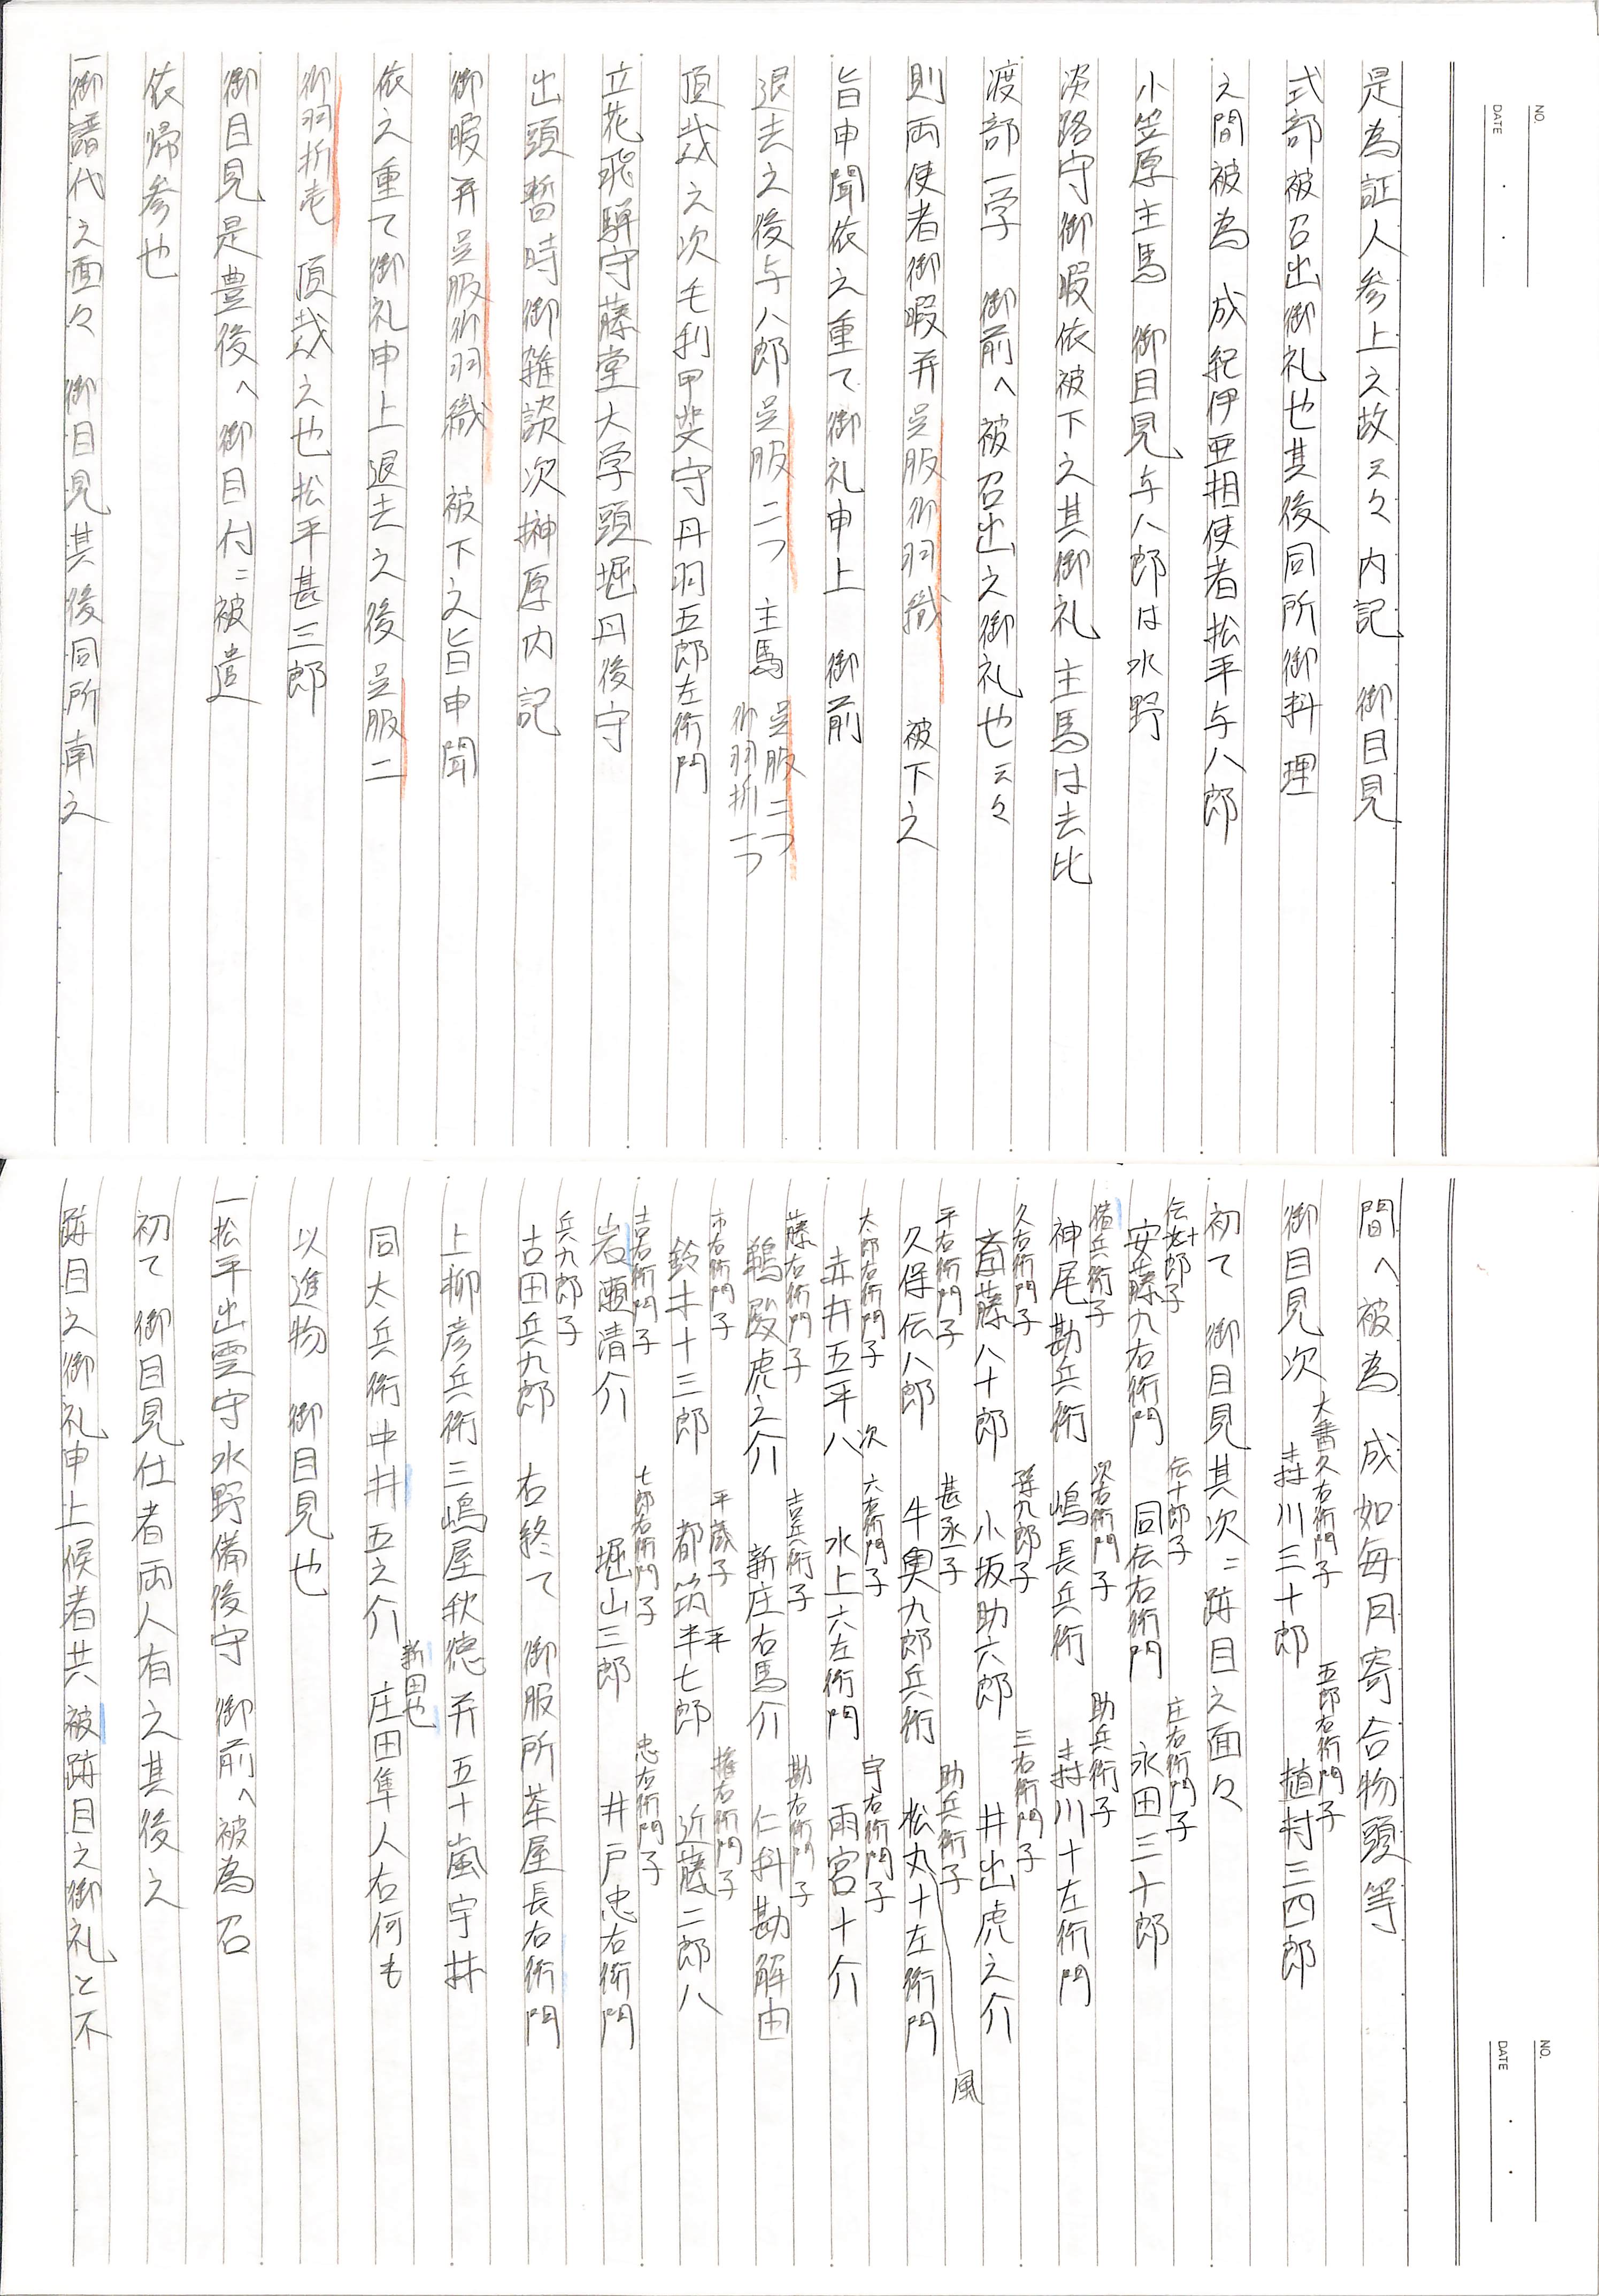 NO.
DATE
是為証人参上之故云々内記　御目見
式部被召出御礼也其後同所御料理
之間被為　成紀伊亜相使者松平与八郎
小笠原主馬　御目見与八郎は水野
淡路守御暇依被下之其御礼主馬は去比
渡部一学　御前へ被召出之御礼也云々
則両使者御暇并呉服御羽織　被下之
旨申聞依之重て御礼申上　御前
退去之後与八郎呉服二つ　主馬　呉服二つ
御羽折一つ
頂戴之次毛利甲斐守丹羽五郎左衛門
立花飛騨守藤堂大学頭堀丹後守
出頭暫時御雑談次榊原内記
御暇并呉服御羽織　被下之旨申聞
依之重て御礼申上退去之後呉服二
御羽折壱　頂戴之也松平甚三郎
御目見是豊後へ御目付ニ被遣
依帰参也
一御譜代之面々　御目見其後同所南之
NO.
DATE
間へ被為　成如毎月寄合物頭等
大番久右衛門子　五郎右衛門子
御目見次　森川三十郎　植村三四郎
初て　御目見其次ニ跡目之面々
伝十郎子　伝十郎子　庄右衛門子
安藤九右衛門　同伝右衛門　永田三十郎
猪兵衛子　次右衛門子　助兵衛子
神尾勘兵衛　嶋長兵衛　森川十左衛門
久右衛門子　孫九郎子　三右衛門子
斎藤八十郎　小坂助六郎　井出虎之介
平右衛門子　甚丞子　助兵衛子　風
久保伝八郎　牛奥九郎兵衛　松丸十左衛門
太郎右衛門子　次　六右衛門子　宇右衛門子
赤井五平八　水上六左衛門　雨宮十介
藤右衛門子　吉兵衛子　勘右衛門子
鵜殿虎之介　新庄右馬介　仁科勘解由
市右衛門子　平蔵子　平　権右衛門子
鈴木十三郎　都筑半七郎　近藤二郎八
吉右衛門子　七郎右衛門子　忠右衛門子
岩瀬清介　堀山三郎　井戸忠右衛門
兵九郎子
古田兵九郎　右終て　御服所茶屋長右衛門
上柳彦兵衛三嶋屋秋徳并五十嵐宇兵
新田也
同太兵衛中井五之介　庄田隼人右何も
以進物　御目見也
一松平出雲守水野備後守　御前へ被為召
初て御目見仕者両人有之其後之
跡目之御礼申上候者共被跡目之御礼と不